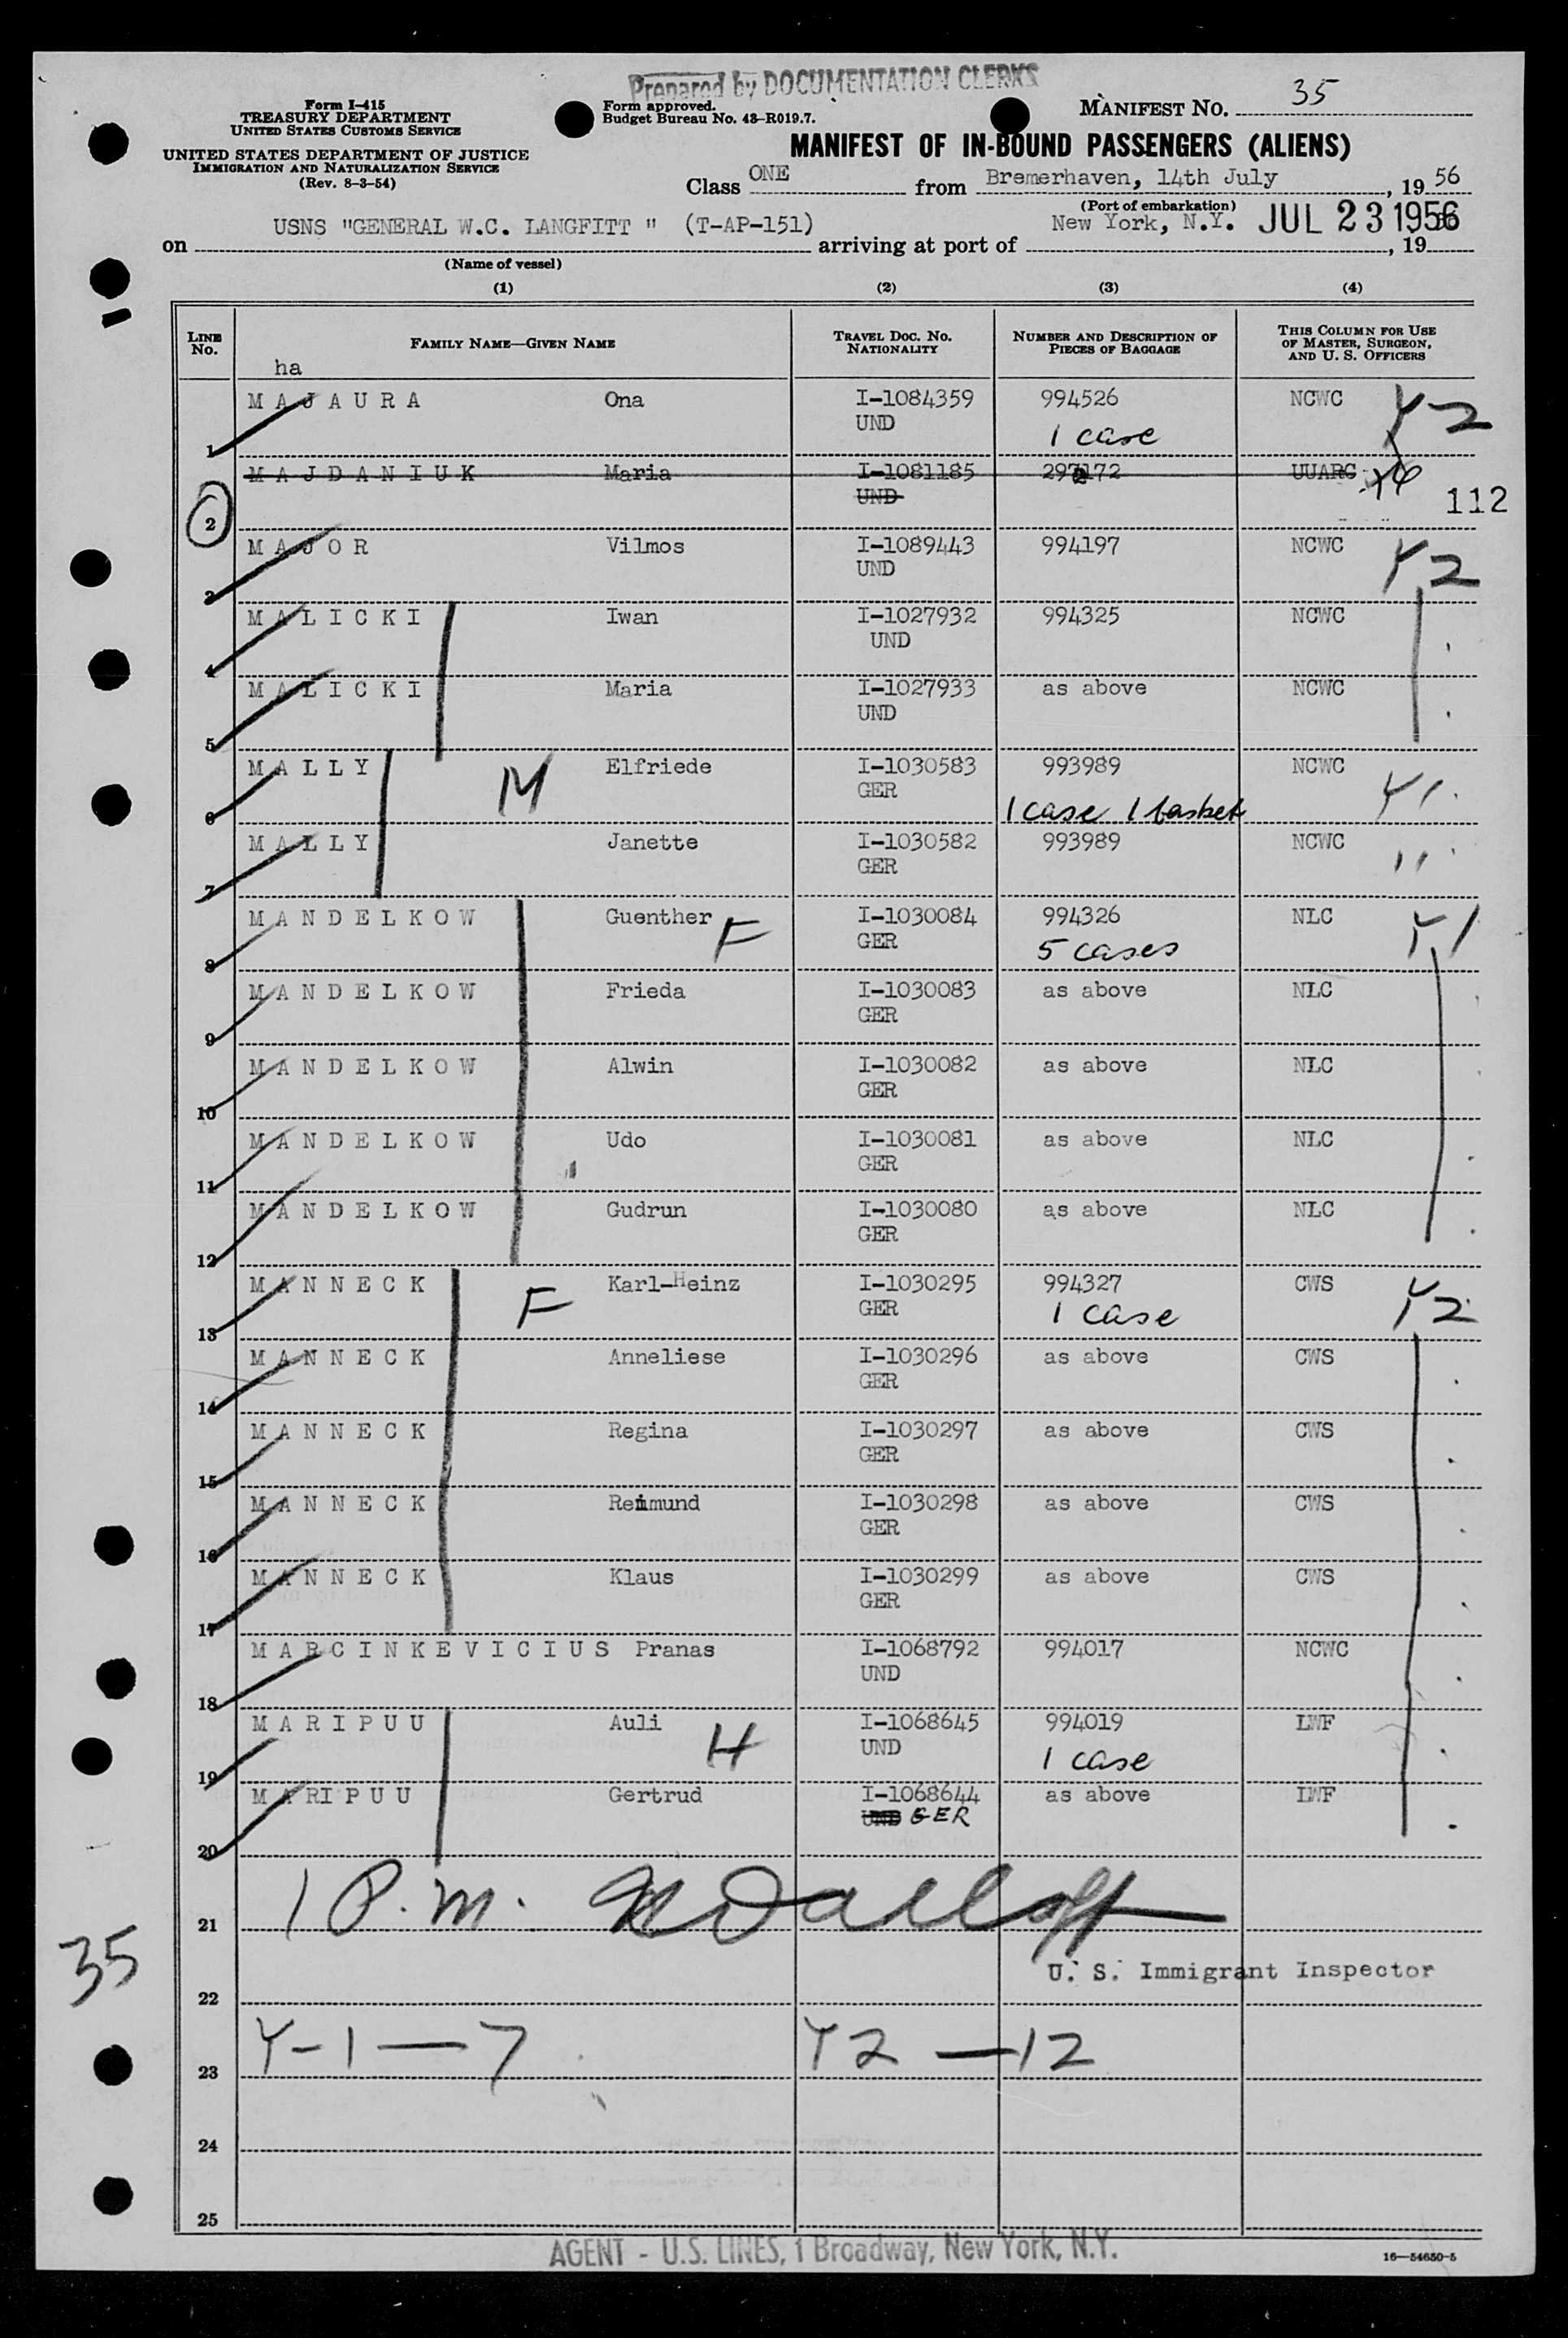 Prepared by DOCUMENTATION CLERKS
Form I-415
TREASURY DEPARTMENT
UNITED STATES CUSTOMS SERVICE
UNITED STATES DEPARTMENT OF JUSTICE
IMMIGRATION AND NATURALIZATION SERVICE
(Rev. 8-3-54)
Form approved.
Budget Bureau No. 43-R019.7.
MANIFEST NO. 35
MANIFEST OF IN-BOUND PASSENGERS (ALIENS)
Class ONE from Bremerhaven, 14th July, 19 56
(Port of embarkation)
on USNS "GENERAL W.C. LANGFITT " (T-AP-151) arriving at port of New York, N.Y. JUL 23 1956, 19
(Name of vessel)
(1) (2) (3) (4)
LINE No. FAMILY NAME—GIVEN NAME TRAVEL DOC. NO. NATIONALITY NUMBER AND DESCRIPTION OF PIECES OF BAGGAGE THIS COLUMN FOR USE OF MASTER, SURGEON, AND U. S. OFFICERS
ha
1 MAJAURA Ona I-1084359 994526 NCWC Y2
UND 1 case
2 MAJDANIUK Maria I-1081185 UUARC
UND 112
3 MAJOR Vilmos I-1089443 994197 NCWC Y2
UND
4 MALICKI Iwan I-1027932 994325 NCWC
UND
5 MALICKI Maria I-1027933 as above NCWC
UND
6 MALLY M Elfriede I-1030583 993989 NCWC Y1
GER 1 case 1 basket
7 MALLY Janette I-1030582 993989 NCWC 11
GER
8 MANDELKOW Guenther F I-1030084 994326 NLC Y1
GER 5 cases
9 MANDELKOW Frieda I-1030083 as above NLC
GER
10 MANDELKOW Alwin I-1030082 as above NLC
GER
11 MANDELKOW Udo I-1030081 as above NLC
GER
12 MANDELKOW Gudrun I-1030080 as above NLC
GER
13 MANNECK F Karl-Heinz I-1030295 994327 CWS Y2
GER 1 case
14 MANNECK Anneliese I-1030296 as above CWS
GER
15 MANNECK Regina I-1030297 as above CWS
GER
16 MANNECK Reimund I-1030298 as above CWS
GER
17 MANNECK Klaus I-1030299 as above CWS
GER
18 MARCINKEVICIUS Pranas I-1068792 994017 NCWC
UND
19 MARIPUU Auli H I-1068645 994019 LWF
UND 1 case
20 MARIPUU Gertrud I-1068644 as above LWF
UND GER
21 1 P.m.
35
U. S. Immigrant Inspector
22
23 Y-1—7 Y2—12
24
25
AGENT - U.S. LINES, 1 Broadway, New York, N.Y.
16—54650-5